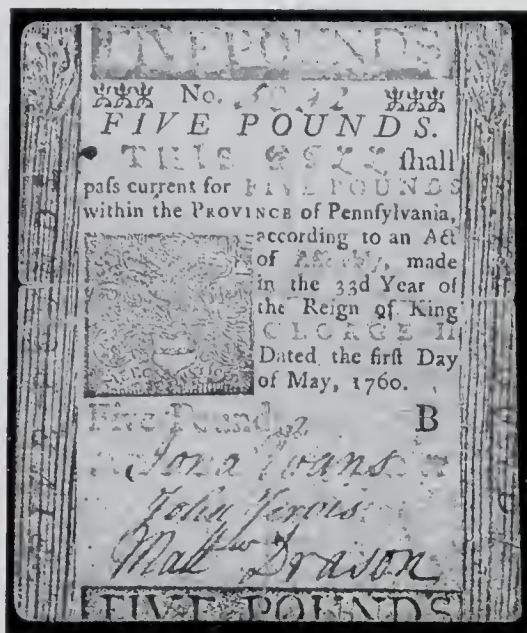 FIVE POUNDS
No.
FIVE POUNDS.
THIS BILL ſhall
paſs current for FIVE POUNDS
within the PROVINCE of Pennſylvania,
according to an Act
of Aſſembly, made
in the 33d Year of
the Reign of King
GEORGE II.
Dated the firſt Day
of May, 1760.
Five Pounds B
Jona Evans
John
Mattw
FIVE POUNDS